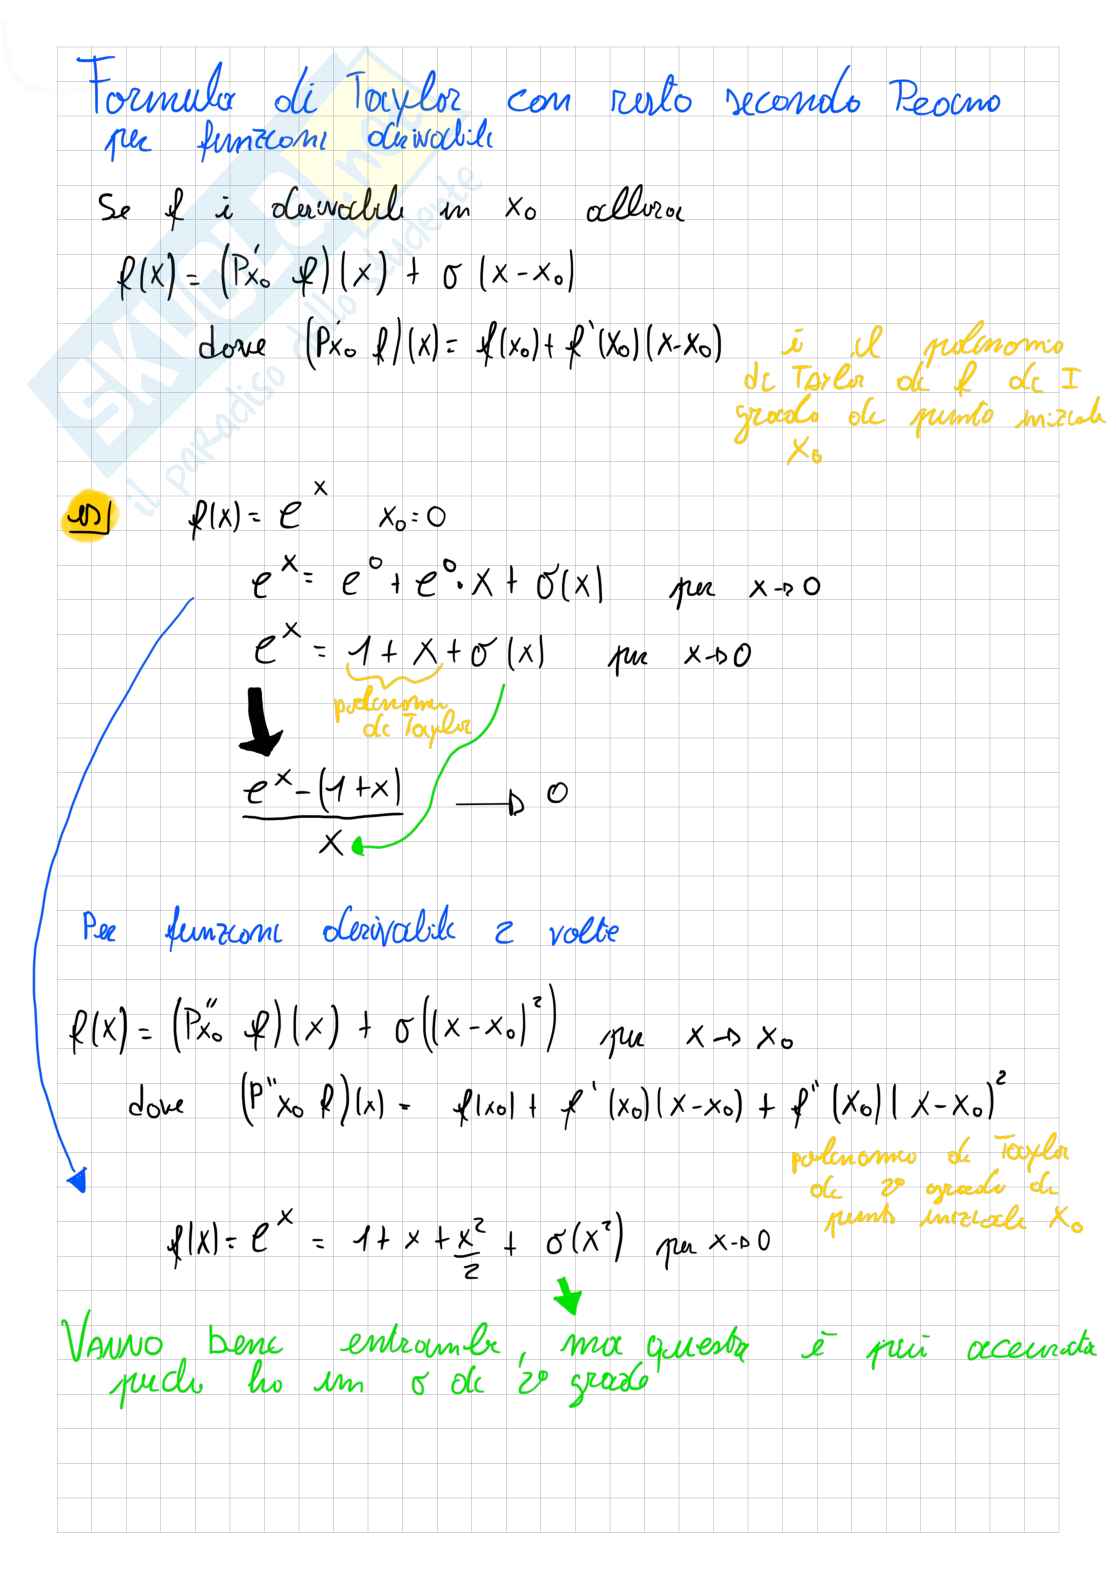 Formula di Taylor con resto secondo Peano
per funzioni derivabili
Se f è derivabile in x₀ allora
f(x) = (P'x₀ f)(x) + σ(x-x₀)
dove (P'x₀ f)(x) = f(x₀) + f'(x₀)(x-x₀)
è il polinomio
di Taylor di f di I
grado di punto iniziale
x₀
es|
f(x) = e^x x₀ = 0
e^x = e^0 + e^0 · x + σ(x) per x → 0
e^x = 1 + x + σ(x) per x → 0
polinomi
di Taylor
(e^x - (1+x))/x → 0
Per funzioni derivabili 2 volte
f(x) = (P''x₀ f)(x) + σ((x-x₀)²) per x → x₀
dove (P''x₀ f)(x) = f(x₀) + f'(x₀)(x-x₀) + f''(x₀)(x-x₀)²
polinomio di Taylor
di 2° grado di
punto iniziale x₀
f(x) = e^x = 1 + x + x²/2 + σ(x²) per x → 0
VANNO bene entrambi, ma questa è più accurata
ho un σ di 2° grado
SKUOLA.net
il paradiso dello studente